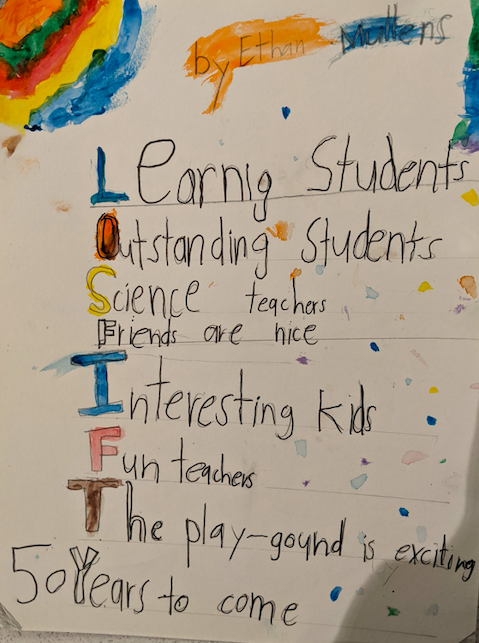 by Ethan Mullens
Learnig Students
Outstanding Students
Science teachers
Friends are nice
Interesting kids
Fun teachers
The play-gound is exciting
50 Years to come